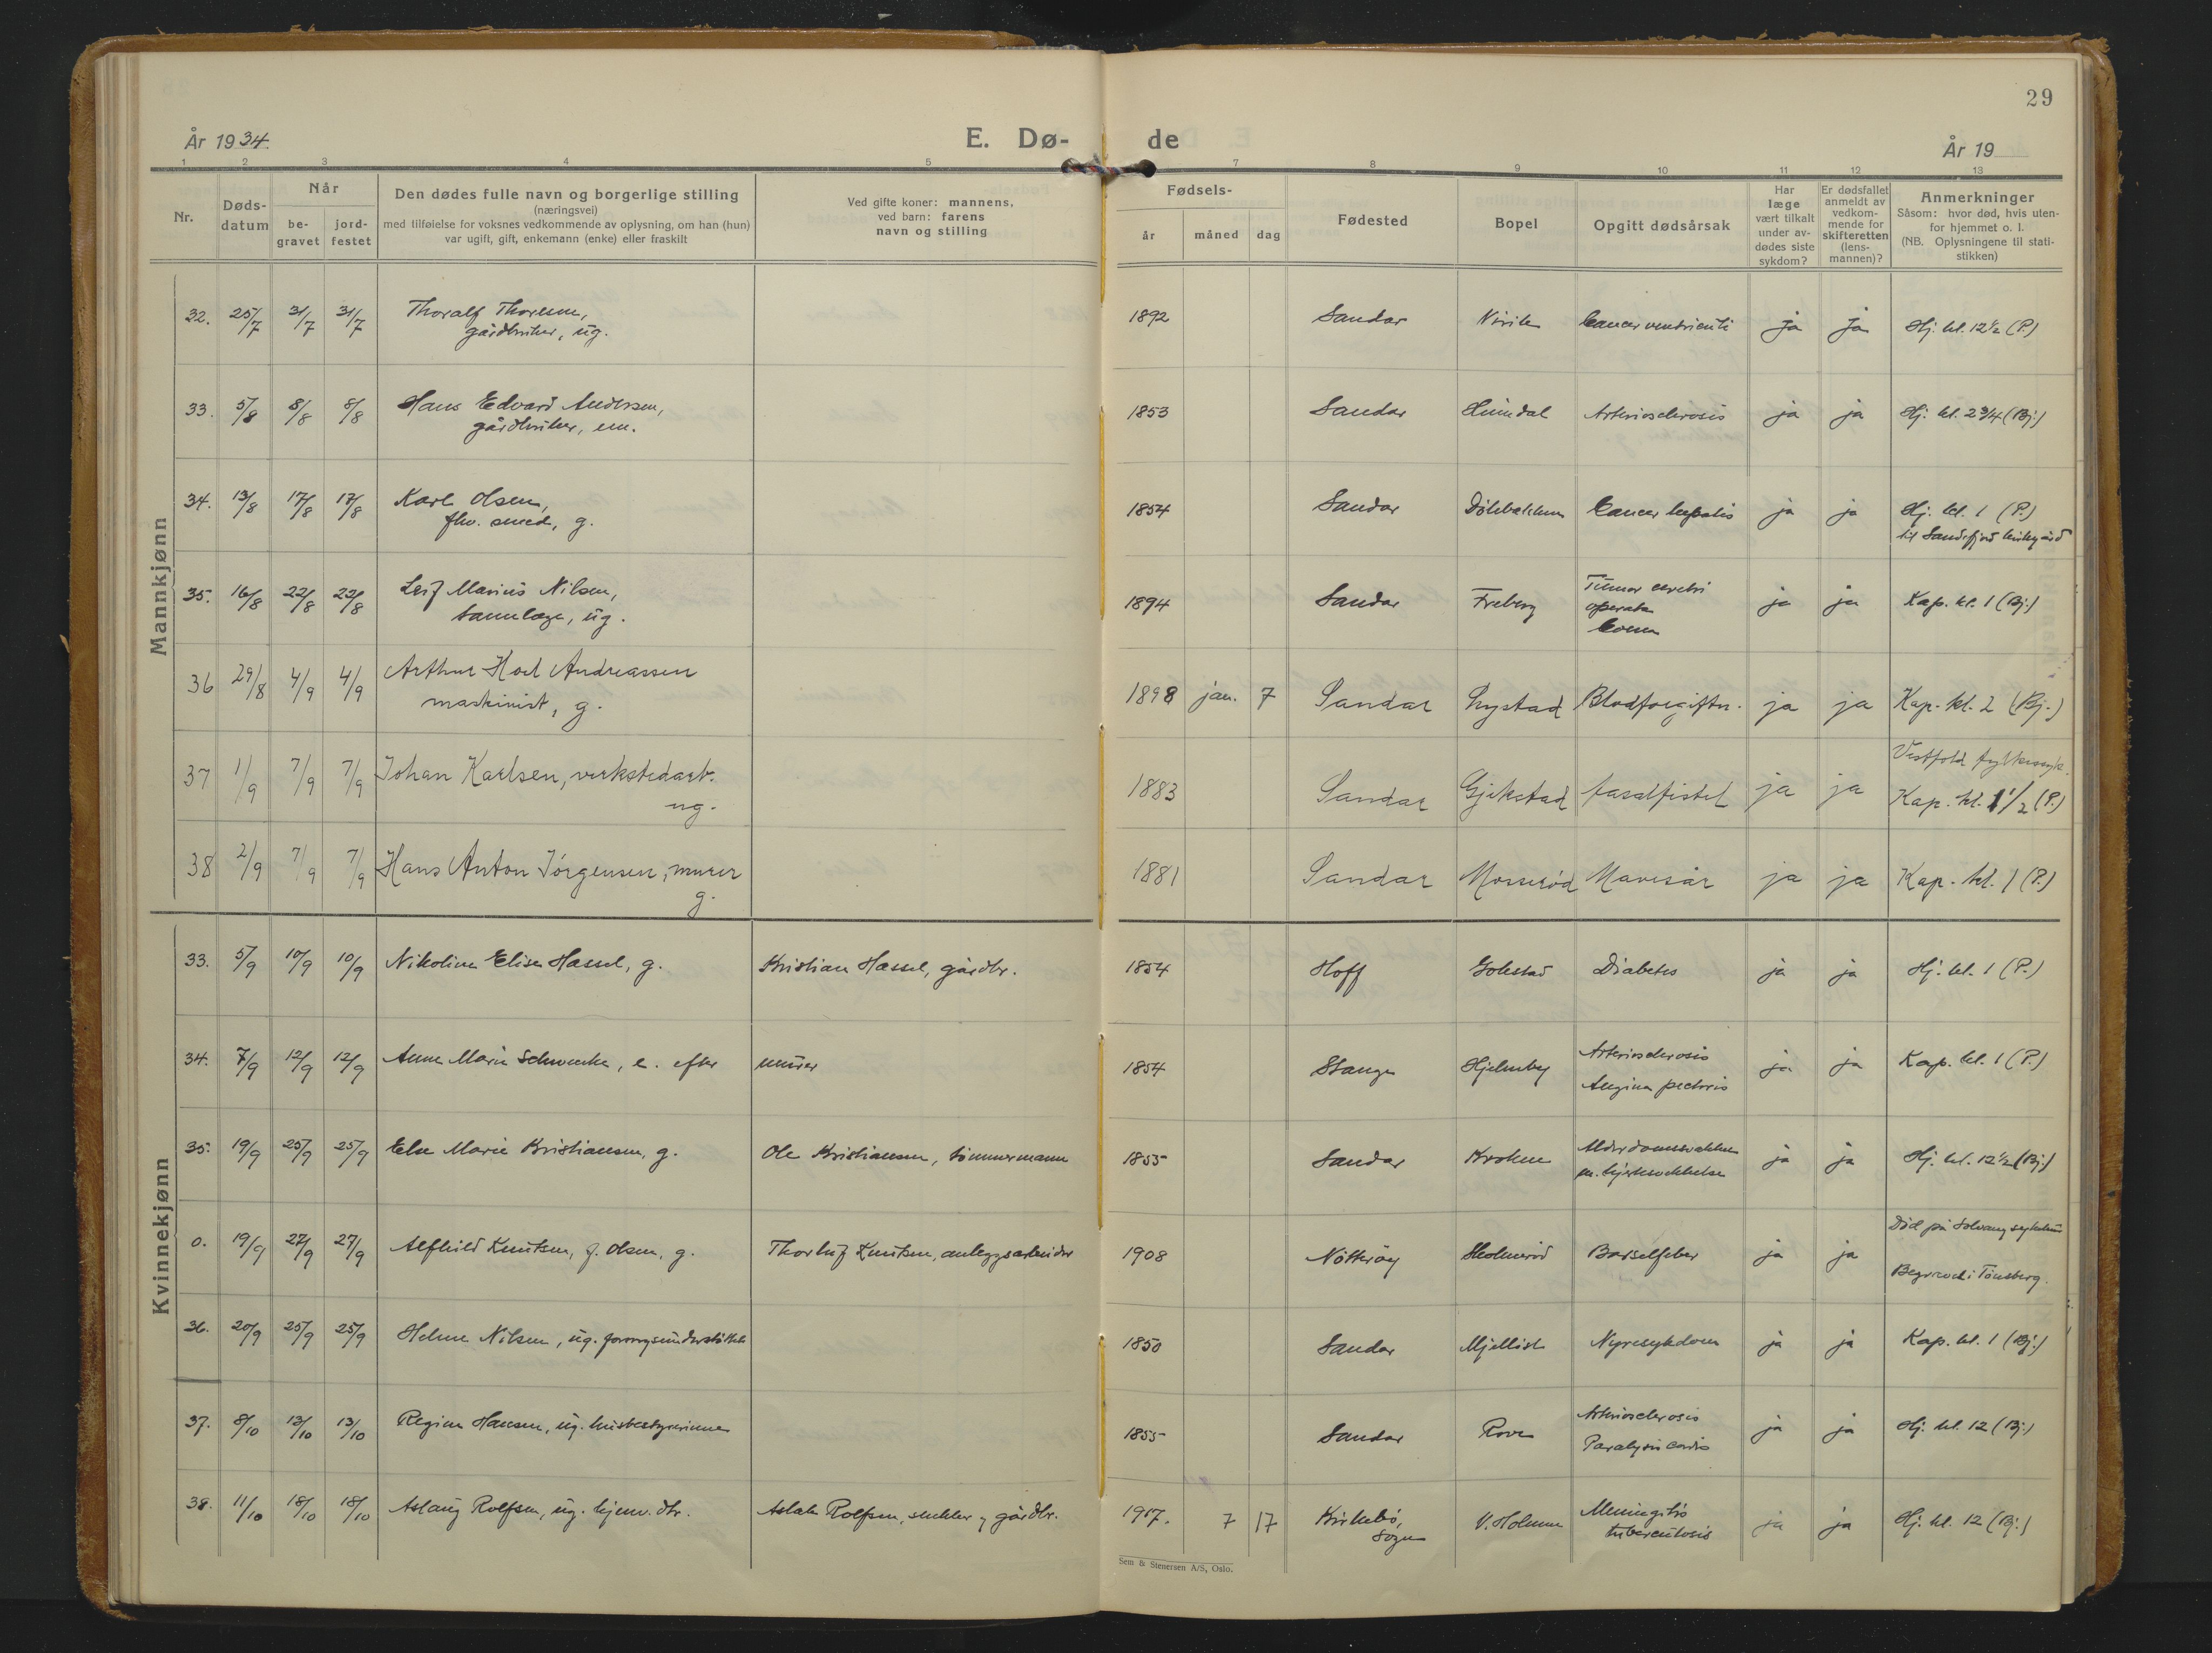 29
År 1934
E. Dø-
de
År 19
1 2 3 4 5 7 8 9 10 11 12 13
Nr.
Døds-
datum
Når
be-
gravet
jord-
festet
Den dødes fulle navn og borgerlige stilling
(næringsvei)
med tilføielse for voksnes vedkommende av oplysning, om han (hun)
var ugift, gift, enkemann (enke) eller fraskilt
Ved gifte koner: mannens,
ved barn: farens
navn og stilling
Fødsels-
år måned dag
Fødested
Bopel
Opgitt dødsårsak
Har
læge
vært tilkalt
under av-
dødes siste
sykdom?
Er dødsfallet
anmeldt av
vedkom-
mende for
skifteretten
(lens-
mannen)?
Anmerkninger
Såsom: hvor død, hvis uten-
for hjemmet o. l.
(NB. Oplysningene til stati-
stikken)
Mannkjønn
32. 25/7 31/7 31/7 Thoralf Thoresen, 1892 Sandar Virik Cancer ventriculi ja ja Hj. kl. 12½ (P.)
gårdbruker, ug.
33. 5/8 8/8 8/8 Hans Edvard Andersen, 1853 Sandar Unndal Arteriosclerosis ja ja Hj. kl. 2 3/4 (Bj.)
gårdbruker, em.
34. 13/8 17/8 17/8 Karl Olsen, 1854 Sandar Cancer hepatis ja ja Hj. kl. 1 (P.)
fhv. smed, g. til Sandefjord kirkegård
35. 16/8 22/8 22/8 Leif Marius Nilsen, 1894 Sandar Freberg Tumor cerebri ja ja Kap. kl. 1 (Bj.)
tannlæge, ug. operata
Coma
36 29/8 4/9 4/9 Arthur Hoel Andreassen 1898 jan. 7 Sandar Lystad Blodforgiftn. ja ja Kap. kl. 2 (Bj.)
maskinist, g.
37 1/9 7/9 7/9 Johan Karlsen, verkstedarb. 1883 Sandar Gjekstad ja ja Vestfold fylkessyk.
ug. Kap. kl. 1 1/2 (P.)
38 2/9 7/9 7/9 Hans Anton Jörgensen, murer 1881 Sandar Mosserød Mavesår ja ja Kap. kl. 1 (P.)
g.
Kvinnekjønn
33. 5/9 10/9 10/9 Nikoline Elise Hassel, g. Kristian Hassel, gårdbr. 1854 Hoff Gokstad Diabetes ja ja Hj. kl. 1 (P.)
34. 7/9 12/9 12/9 Anne Marie Schwencke, e. efter murer 1854 Stange Hjelmby Arteriosclerosis ja ja Kap. kl. 1 (P.)
Angina pectoris
35. 19/9 25/9 25/9 Else Marie Kristiansen, g. Ole Kristiansen, tömmermann 1855 Sandar Kroken Alderdomssvakhet ja ja Hj. kl. 12½ (Bj.)
m. hjertesvekkelse
0. 19/9 27/9 27/9 Alfhild Knutsen, f. Olsen, g. Thorleif Knutsen, anleggsarbeider 1908 Nötteröy Skolmeröd Barselfeber ja ja Död på Solvang sykehus
Begravet i Tönsberg.
36. 20/9 25/9 25/9 Helene Nilsen, ug. forsorgsunderstöttet 1850 Sandar Mjellist Nyresykdom ja ja Kap. kl. 1 (Bj.)
37. 8/10 13/10 13/10 Regine Hansen, ug. husbestyrerinne 1855 Sandar Rove Arteriosclerosis ja ja Hj. kl. 12 (Bj.)
Paralysis cordis
38. 11/10 18/10 18/10 Aslaug Rolfsen, ug. hjemv. dtr. Aslak Rolfsen, snekker og gårdbr. 1917. 7 17 Kirkebö, V. Holmen Meningitis ja ja Hj. kl. 12 (Bj.)
Sogn tuberculosis
Sem & Stenersen A/S, Oslo.